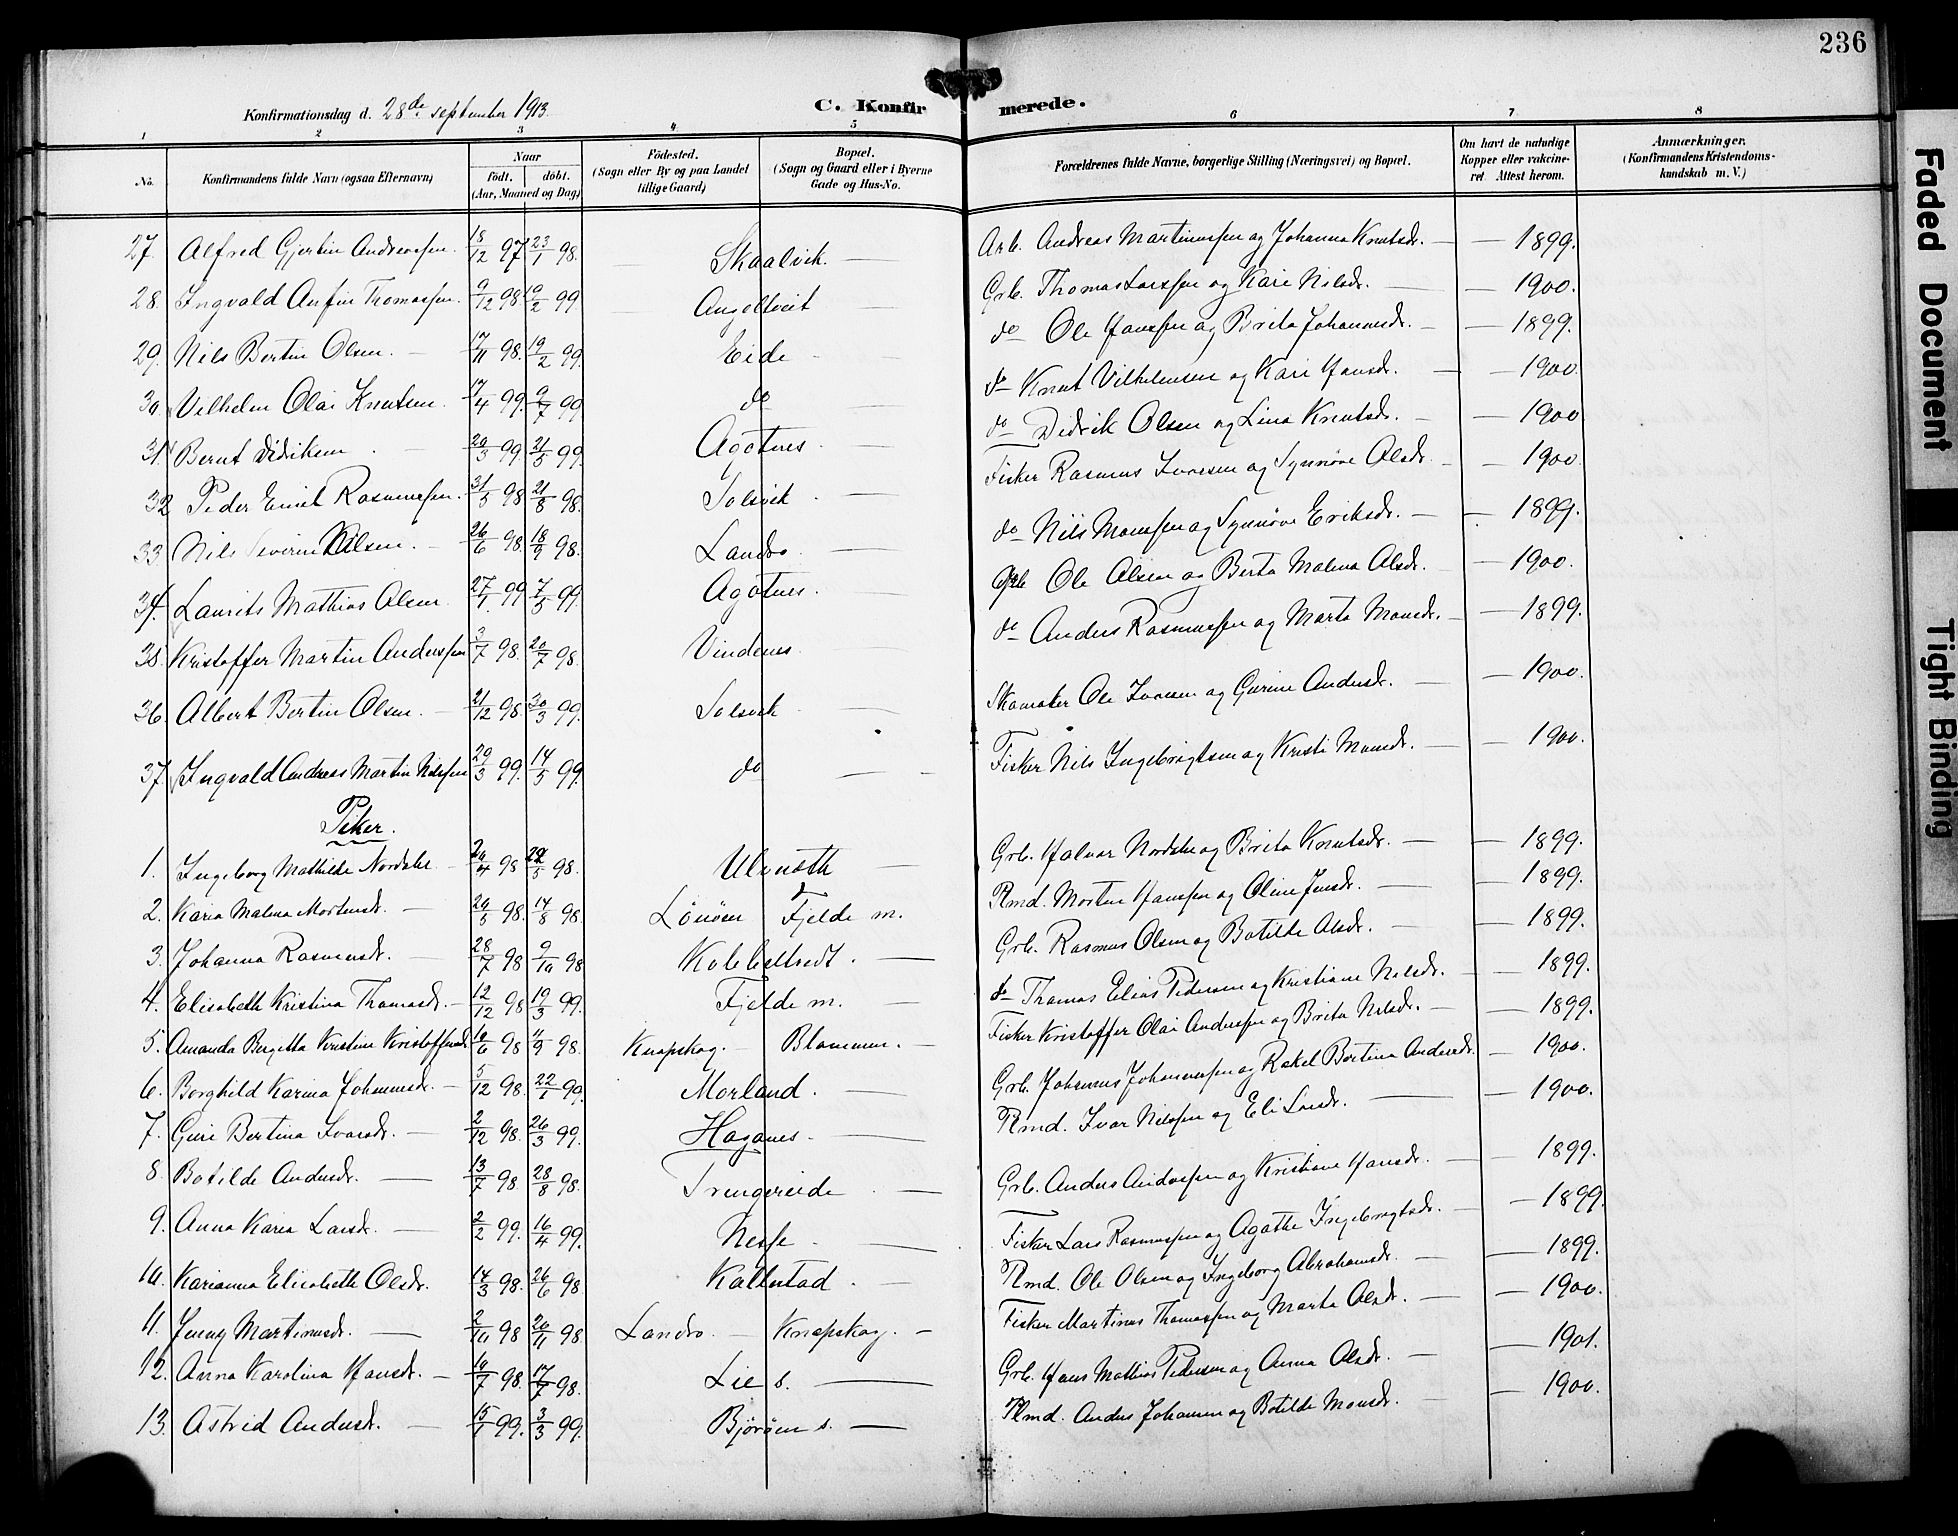 236
Konfirmationsdag d. 28de september 1913.
C. Konfirmerede.
1 2 3 4 5 6 7 8
No. Konfirmandens fulde Navn (ogsaa Efternavn) Naar födt. döbt. (Aar, Maaned og Dag) Födested. (Sogn eller By og paa Landet tillige Gaard) Bopæl. (Sogn og Gaard eller i Byerne Gade og Hus-No. Forældrenes fulde Navne, borgerlige Stilling (Næringsvei) og Bopæl. Om havt de naturlige Kopper eller vakcineret. Attest herom. Anmærkninger. (Konfirmandens Kristendomskundskab m. V.)
27. Alfred Gjertin Andreassen 18/12 97 23/1 98. Skaalvik. Arb. Andreas Martinussen og Johanna Knutsdr. 1899.
28. Ingvald Anfin Thomassen. 9/12 98 19/2 99. Angeltveit Grb. Thomas Larssen og Kari Nilsdr. 1900.
29. Nils Bertin Olsen. 17/11 98. 19/2 99. Eide do Ole Hanssen og Brita Johannesdr. 1899.
30. Vilhelm Olai Knutsen 17/4 99. 9/7 99 do do Knut Vilhelmsen og Kari Hansdr. 1900.
31. Bernt Didriksen 20/3 99. 21/5 99. Agotnes do Didrik Olsen og Lina Knutsdr. 1900
32 Peder Emil Rasmussen. 31/5 98 21/8 98. Solsvik Fisker Rasmus Ivarsen og Synnøve Olsdr. 1900
33 Nils Severin Nilsen. 26/6 98. 18/9 98. Landro. do Nils Monssen og Synnøve Eriksdr. 1899.
34. Laurits Mathias Olsen 27/1 99 7/5 99. Agotnes. Grb Ole Olsen og Berta Malena Olsdr. 1900.
35. Kristoffer Martin Anderssen 3/7 98. 20/7 98. Vindenes do Anders Rasmussen og Marta Monsdr. 1899.
36. Albert Bertin Olsen. 21/12 98. 30/3 99. Solsvik Skomaker Ole Ivarsen og Gurine Andersdr. 1900.
37. Ingvald Andreas Martin Nilssen 29/3 99. 14/5 99. do Fisker Nils Ingebrigtsen og Kristi Monsdr. 1900.
Piker.
1. Ingeborg Mathilde Nordstre 98 98. Ulvesæth Grb. Halvar Nordstre og Brita Knutsdr. 1899.
2. Karia Malena Mortensdr. 20/5 98. 14/8 98. Lönöen Fjelde m. Rmd. Morten Hanssen og Oline Jensdr. 1899.
3. Johanna Rasmusdr. 28/7 98 9/10 98 Kobbeltvedt. Grb. Rasmus Olsen og Botilde Olsdr. 1899.
4. Elisabeth Kristina Thomasdr. 12/12 98 19/3 99. Fjelde m. do Thomas Elias Pedersen og Kristiane Nilsdr. 1899.
5. Amanda Bergitta Kristine Kristoffersdr. 10/6 98 4/9 98. Knapskog. Blommen. Fisker Kristoffer Olai Anderssen og Brita Nilsdr. 1899.
6. Borghild Karina Johannesdr. 5/12 98. 22/1 99. Morland. Grb. Johannes Johannessen og Rakel Bertina Andersdr. 1900.
7. Guri Bertina Ivarsdr. 2/12 98. 26/3 99. Haganes. Rmd. Ivar Nilssen og Eli Larsdr. 1900.
8 Botilde Andersdr. 13/7 98 28/8 98. Trengereide Grb. Anders Anderssen og Kristiane Hansdr. 1899.
9. Anna Karia Larsdr. 2/2 99. 16/4 99. Nesse Fisker Lars Rasmussen og Agathe Ingebrigtsdr. 1899.
10. Karianna Elisabeth Olsdr. 14/3 98. 26/6 98 Kallestad. Rmd. Ole Olsen og Ingeborg Abrahamsdr. 1899.
11. Jenny Martinusdr. 2/10 98 20/11 98 Landro. Knapskog. Fisker Martinus Thomassen og Marta Olsdr. 1900.
12. Anna Karolina Hansdr. 10/7 98. 17/7 98. Lie s. Grb. Hans Mathias Pedersen og Anna Olsdr. 1901.
13. Astrid Andersdr. 15/1 99. 3/3 99. Björöen s. Rmd. Anders Johansen og Botilde Monsdr. 1900.
Faded Document
Tight Binding